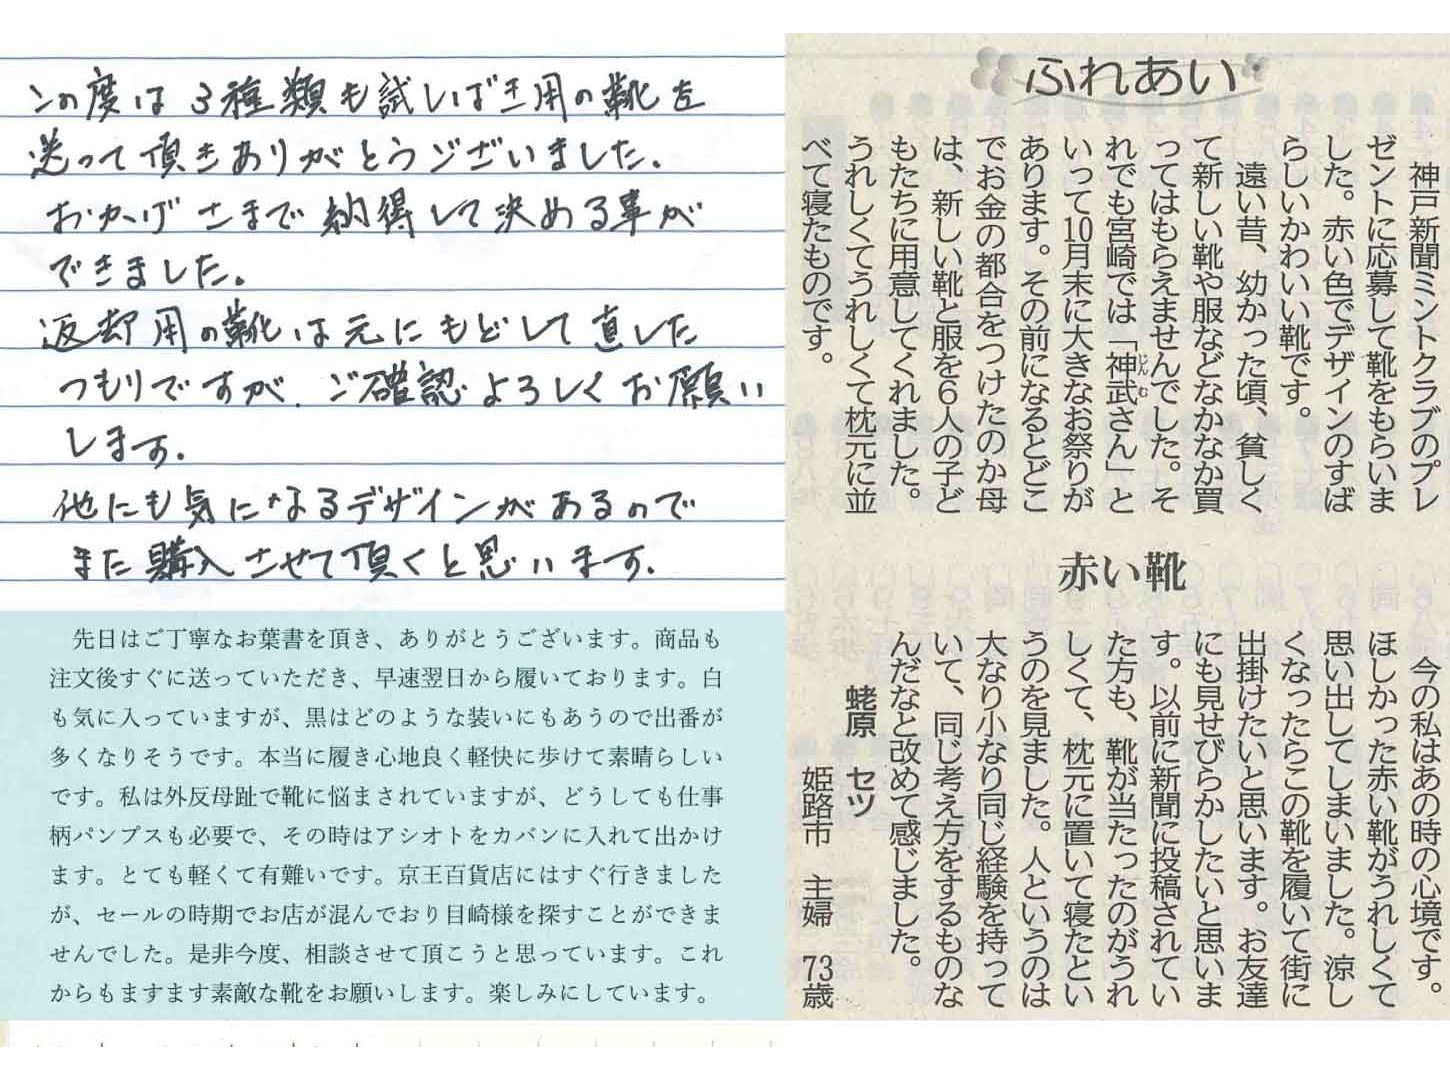 この度は3種類も試しばき用の靴を
送って頂きありがとうございました。
おかげさまで納得して決める事が
できました。
返却用の靴は元にもどして直した
つもりですが、ご確認よろしくお願い
します。
他にも気になるデザインがあるので
また購入させて頂くと思います。
先日はご丁寧なお葉書を頂き、ありがとうございます。商品も
注文後すぐに送っていただき、早速翌日から履いております。白
も気に入っていますが、黒はどのような装いにもあうので出番が
多くなりそうです。本当に履き心地良く軽快に歩けて素晴らしい
です。私は外反母趾で靴に悩まされていますが、どうしても仕事
柄パンプスも必要で、その時はアシオトをカバンに入れて出かけ
ます。とても軽くて有難いです。京王百貨店にはすぐ行きました
が、セールの時期でお店が混んでおり目崎様を探すことができま
せんでした。是非今度、相談させて頂こうと思っています。これ
からもますます素敵な靴をお願いします。楽しみにしています。
ふれあい
神戸新聞ミントクラブのプレ
ゼントに応募して靴をもらいま
した。赤い色でデザインのすば
らしいかわいい靴です。
遠い昔、幼かった頃、貧しく
て新しい靴や服などなかなか買
ってはもらえませんでした。そ
れでも宮崎では「神武さん」と
じんむ
いって10月末に大きなお祭りが
あります。その前になるとどこ
でお金の都合をつけたのか母
は、新しい靴と服を6人の子ど
もたちに用意してくれました。
うれしくてうれしくて枕元に並
べて寝たものです。
赤い靴
今の私はあの時の心境です。
ほしかった赤い靴がうれしくて
思い出してしまいました。涼し
くなったらこの靴を履いて街に
出掛けたいと思います。お友達
にも見せびらかしたいと思いま
す。以前に新聞に投稿されてい
た方も、靴が当たったのがうれ
しくて、枕元に置いて寝たとい
うのを見ました。人というのは
大なり小なり同じ経験を持って
いて、同じ考え方をするものな
んだなと改めて感じました。
蛯原 セツ
姫路市 主婦 73歳